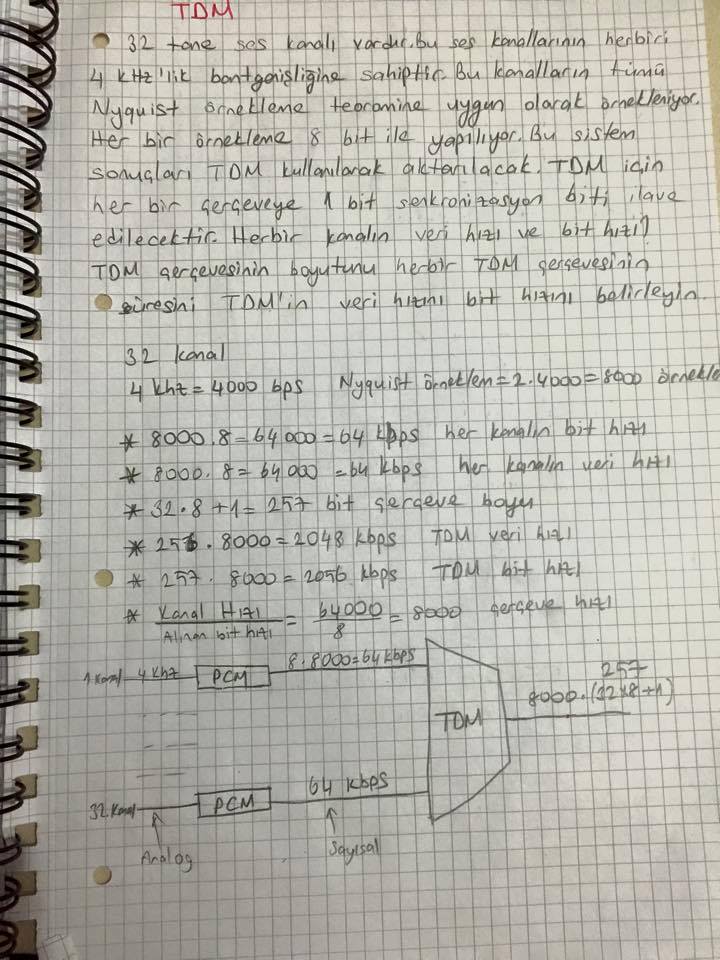 TDM
32 tane ses kanalı vardır. Bu ses kanallarının herbiri
4 kHz'lik bantgenişliğine sahiptir. Bu kanalların tümü
Nyquist örnekleme teoramine uygun olarak örnekleniyor.
Her bir örnekleme 8 bit ile yapılıyor. Bu sistem
sonuçları TDM kullanılarak aktarılacak. TDM için
her bir çerçeveye 1 bit senkronizasyon biti ilave
edilecektir. Herbir kanalın veri hızı ve bit hızı?
TDM çerçevesinin boyutunu herbir TDM çerçevesinin
süresini TDM'in veri hızını bit hızını belirleyin.
32 kanal
4 khz = 4000 bps Nyquist örneklem = 2.4000 = 8000 örnekle
* 8000.8 = 64000 = 64 kbps her kanalın bit hızı
* 8000.8 = 64000 = 64 kbps her kanalın veri hızı
* 32.8+1 = 257 bit çerçeve boyu
* 256.8000 = 2048 kbps TDM veri hızı
* 257.8000 = 2056 kbps TDM bit hızı
* Kanal Hızı / Alınan bit hızı = 64000 / 8 = 8000 çerçeve hızı
1.Kanal 4 Khz PCM 8.8000=64 kbps
257
8000.(32x8+1)
TDM
32.Kanal PCM 64 kbps
Analog
Sayısal